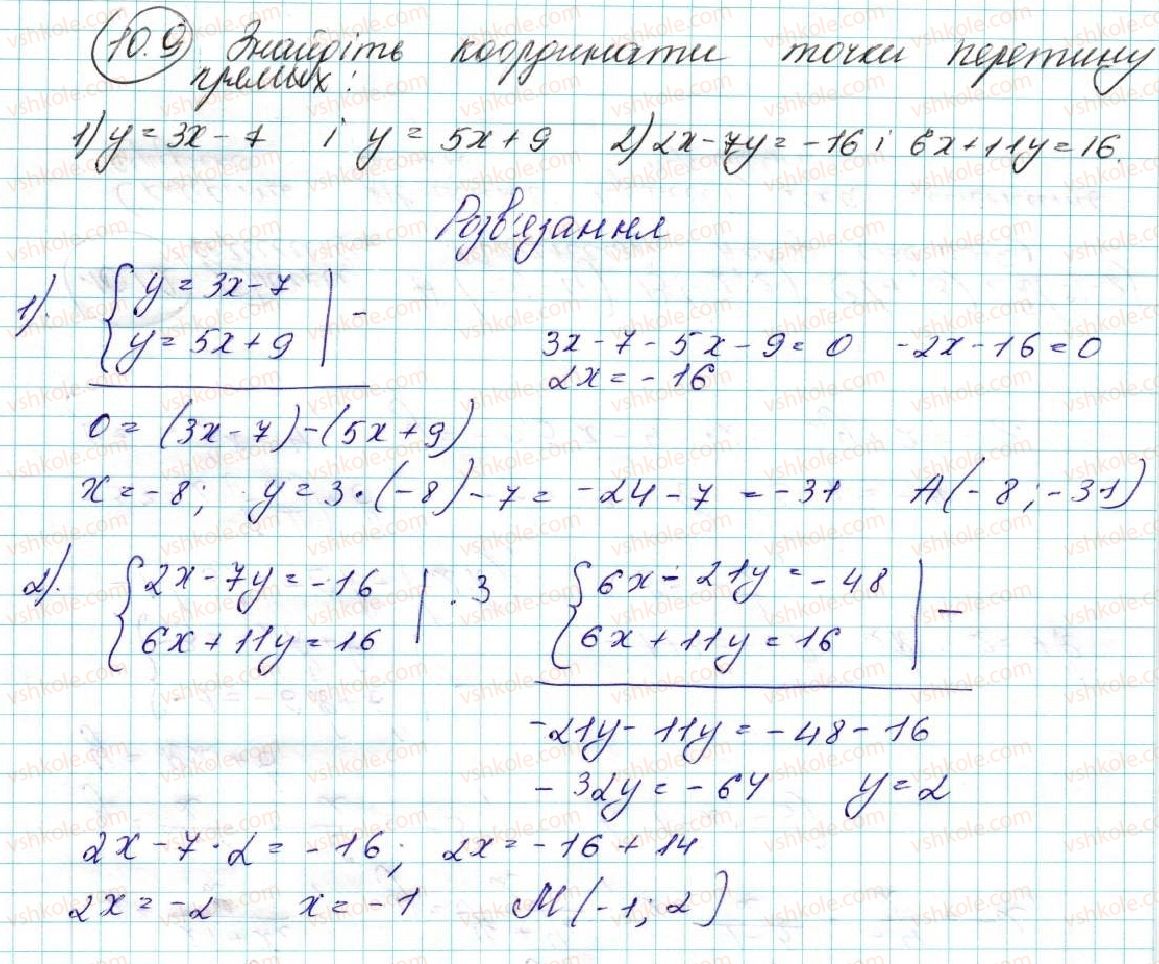 10.9 Знайдіть координати точки перетину
прямых:
1) y = 3x - 7 і y = 5x + 9 2) 2x - 7y = -16 і 6x + 11y = 16.
Розв'язання
1). { y = 3x - 7 | -
{ y = 5x + 9 |
3x - 7 - 5x - 9 = 0 -2x - 16 = 0
2x = -16
0 = (3x - 7) - (5x + 9)
x = -8; y = 3 · (-8) - 7 = -24 - 7 = -31 A(-8; -31)
2). { 2x - 7y = -16 | · 3 { 6x - 21y = -48 | -
{ 6x + 11y = 16 | { 6x + 11y = 16 |
-21y - 11y = -48 - 16
-32y = -64 y = 2
2x - 7 · 2 = -16; 2x = -16 + 14
2x = -2 x = -1 M(-1; 2)
vshkole.com